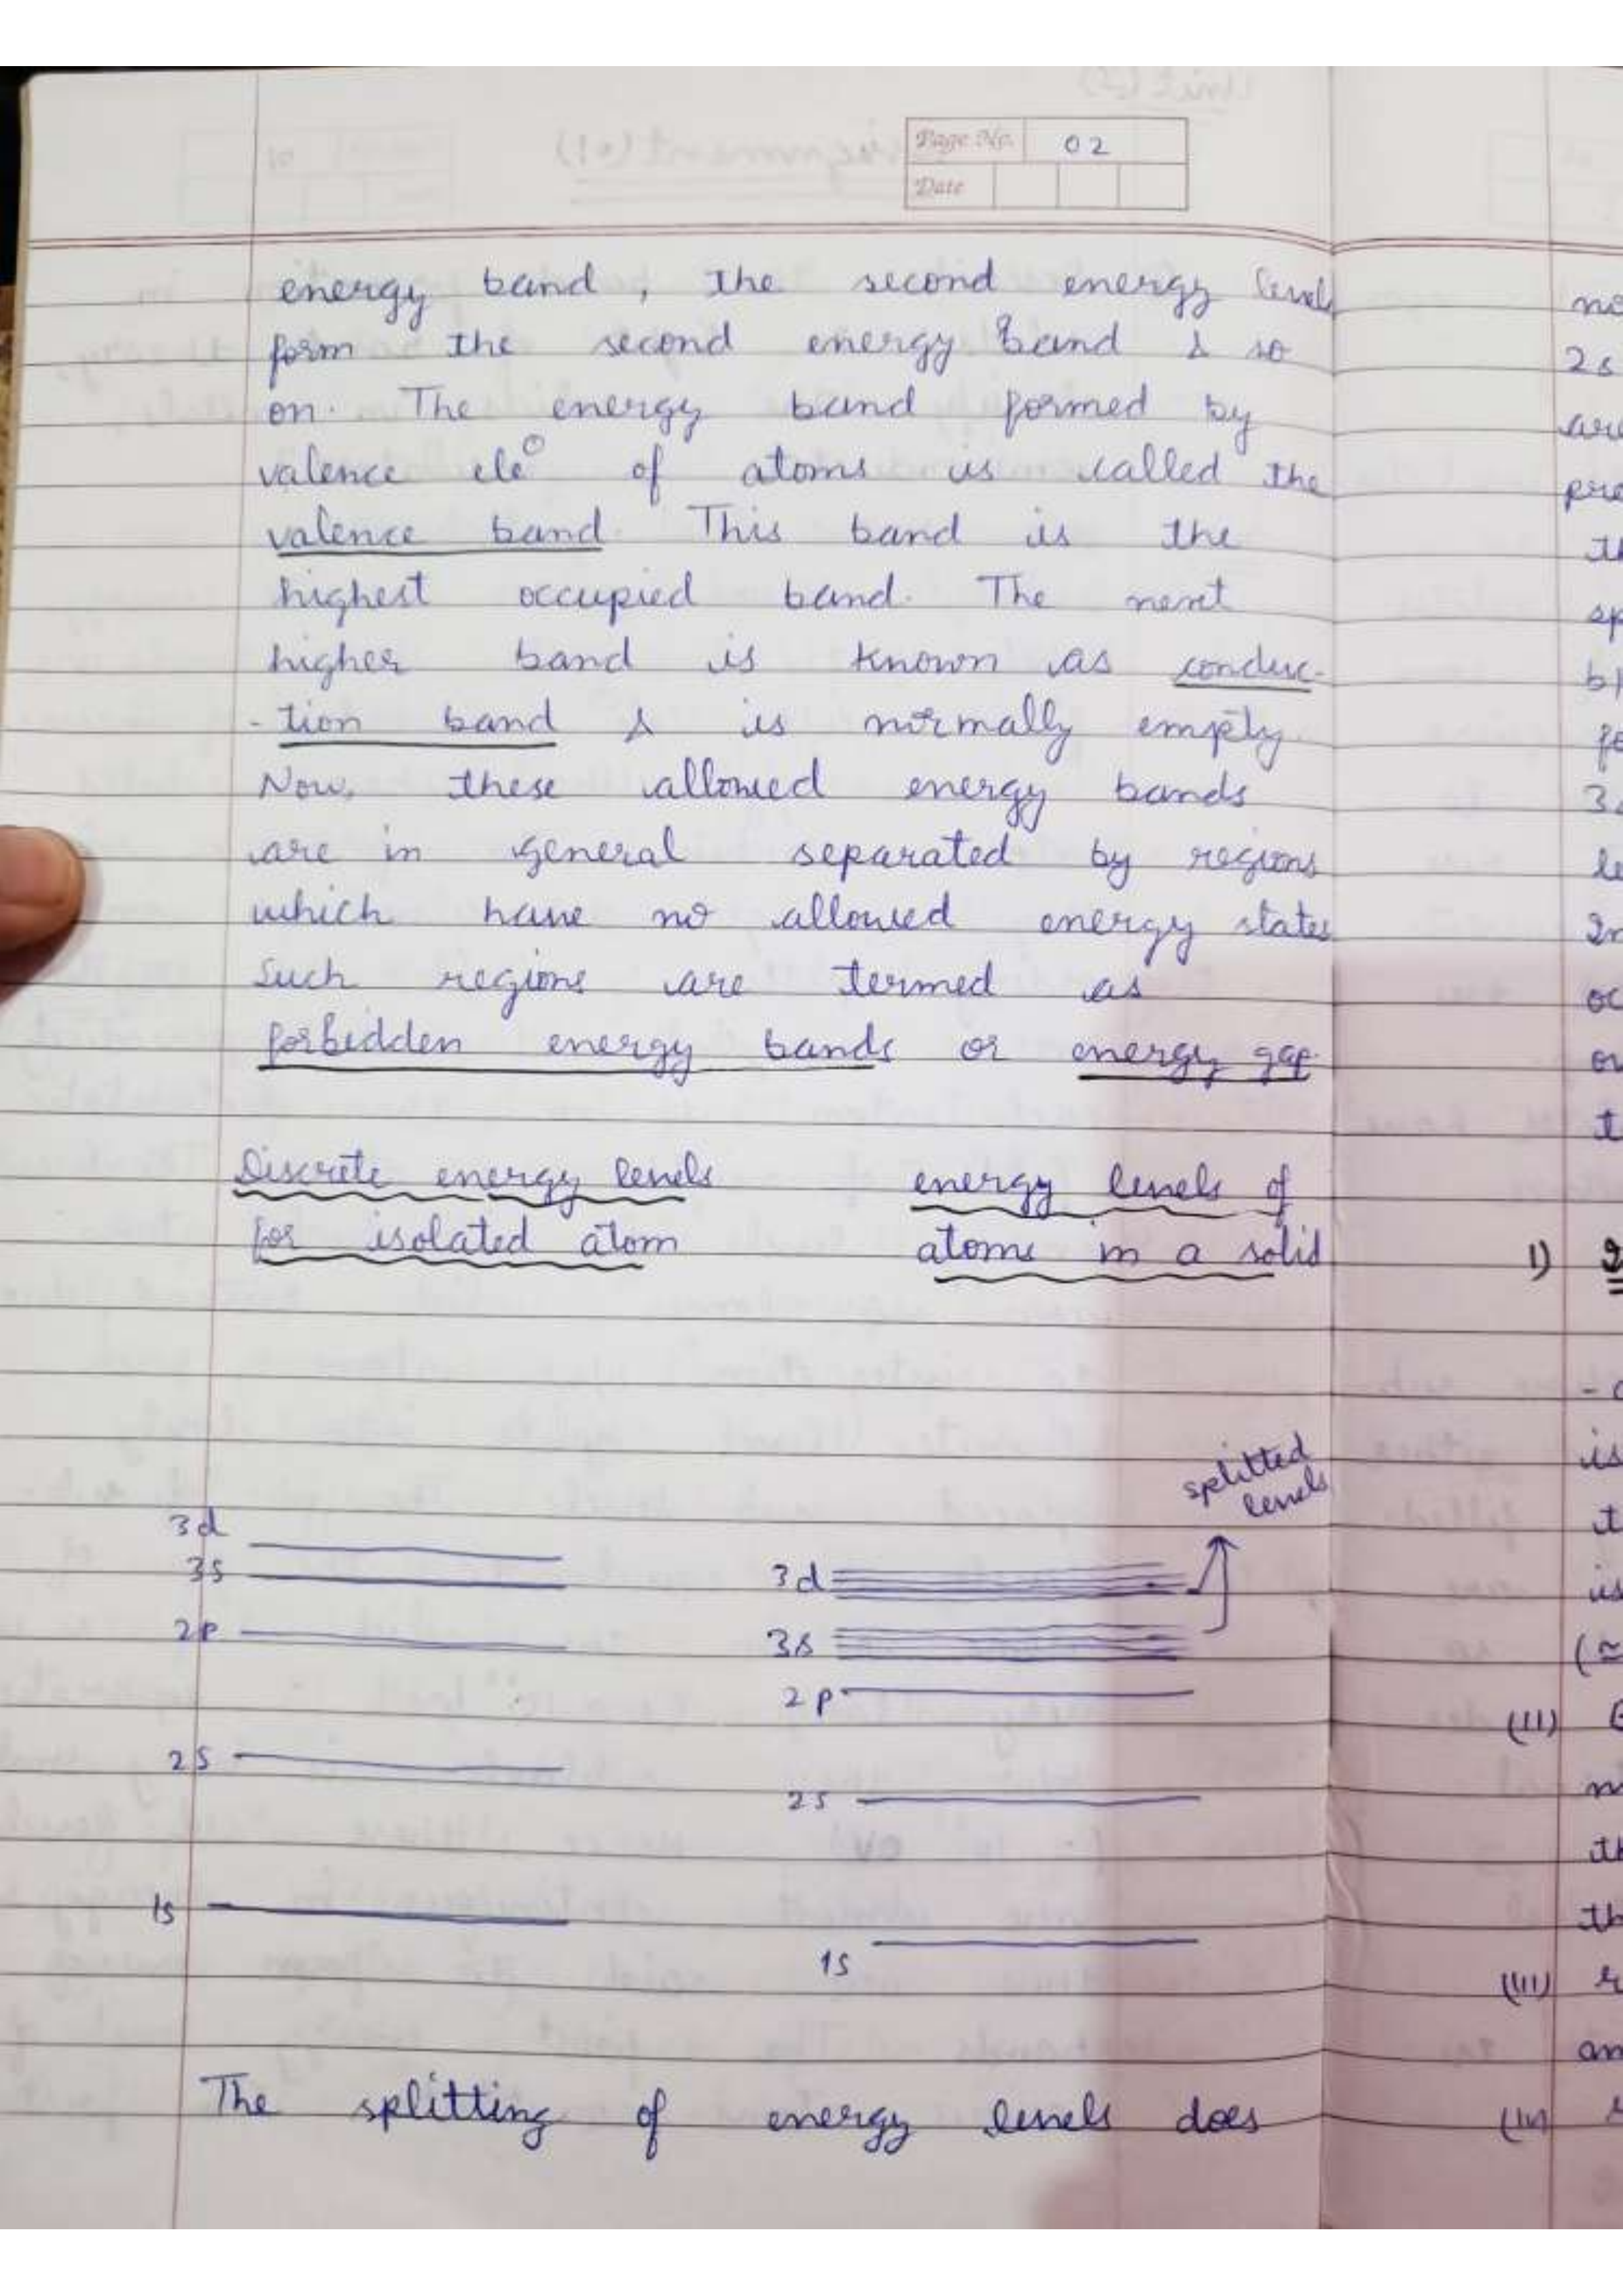 Page No. 02
Date
energy band, the second energy levels
form the second energy band & so
on. The energy band formed by
valence ele⊖ of atoms is called the
valence band. This band is the
highest occupied band. The next
higher band is known as conduc-
-tion band & is normally empty.
Now, these allowed energy bands
are in general separated by regions
which have no allowed energy states
Such regions are termed as
forbidden energy bands or energy gap.
Discrete energy levels
for isolated atom
energy levels of
atoms in a solid
splitted
levels
3d
3s
2p
2s
1s
3d
3s
2p
2s
1s
The splitting of energy levels does
2s
3s
1)
(II)
(III)